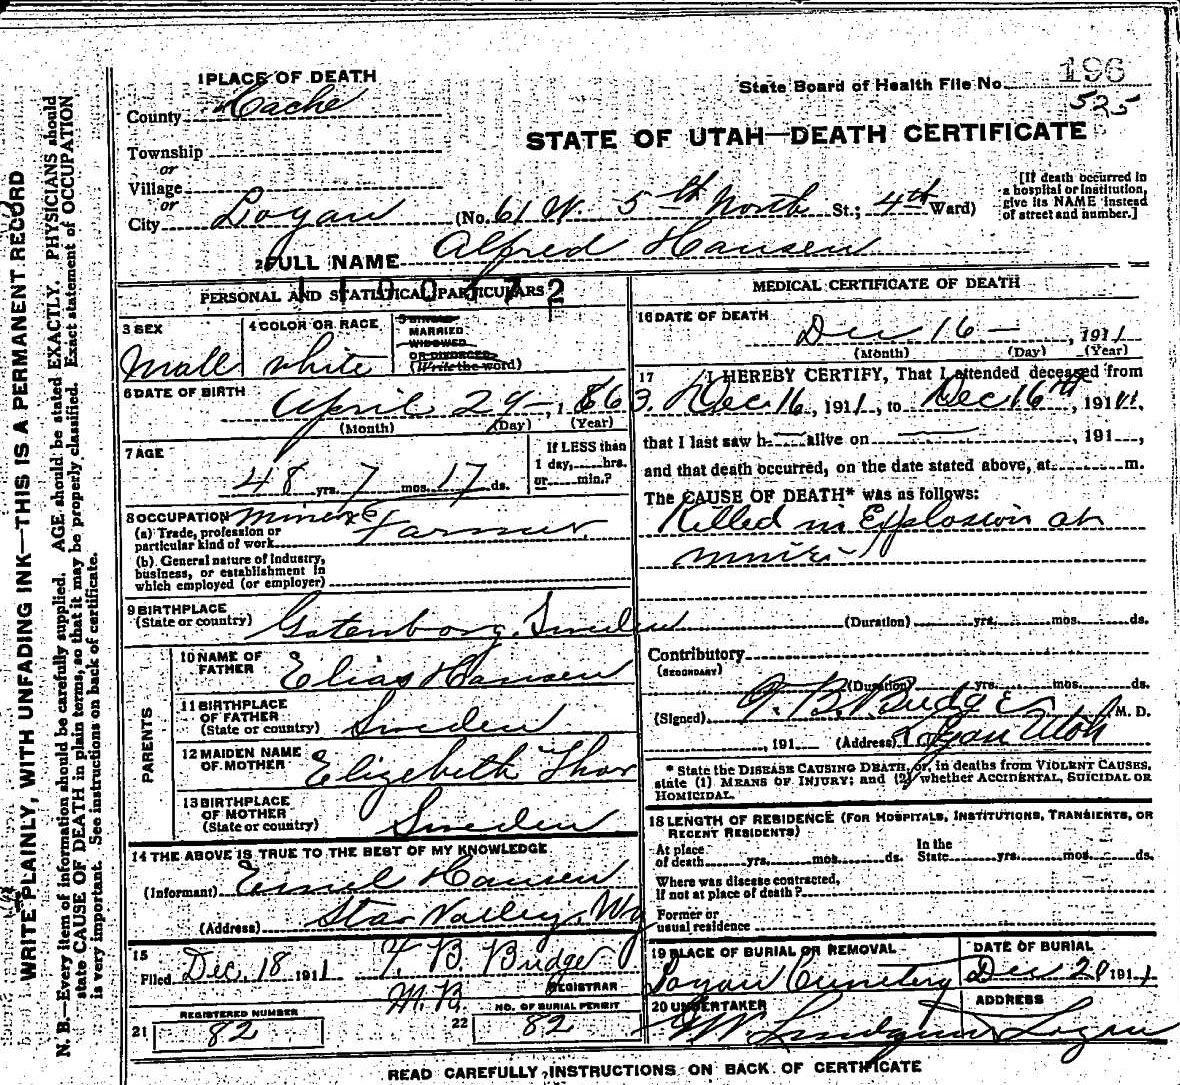 196
State Board of Health File No.
525
STATE OF UTAH—DEATH CERTIFICATE
1 PLACE OF DEATH
County Cache
Township
or
Village
or
City Logan (No. 61 W. 5th North St.; 4th Ward)
[If death occurred in
a hospital or institution,
give its NAME instead
of street and number.]
2 FULL NAME Alfred Hansen
1100372
PERSONAL AND STATISTICAL PARTICULARS
3 SEX
Male
4 COLOR OR RACE
white
5 SINGLE
MARRIED
WIDOWED
OR DIVORCED
(Write the word)
6 DATE OF BIRTH
April 29—, 1863.
(Month) (Day) (Year)
7 AGE
48 yrs. 7 mos. 17 ds.
If LESS than
1 day, hrs.
or min.?
8 OCCUPATION
(a) Trade, profession or
particular kind of work
Miner & Farmer.
(b). General nature of industry,
business, or establishment in
which employed (or employer)
9 BIRTHPLACE
(State or country)
Gotenborg, Sweden
PARENTS
10 NAME OF
FATHER
Elias Hansen
11 BIRTHPLACE
OF FATHER
(State or country)
Sweden
12 MAIDEN NAME
OF MOTHER
Elizebeth Thor
13 BIRTHPLACE
OF MOTHER
(State or country)
Sweden
14 THE ABOVE IS TRUE TO THE BEST OF MY KNOWLEDGE
(Informant) Emil Hansen
(Address) Star Valley, Wy
15
Filed Dec. 18 1911
B. Budge
REGISTRAR
21 REGISTERED NUMBER
82
22 NO. OF BURIAL PERMIT
82
MEDICAL CERTIFICATE OF DEATH
16 DATE OF DEATH
Dec 16—, 1911
(Month) (Day) (Year)
17 I HEREBY CERTIFY, That I attended deceased from
Dec 16, 1911, to Dec 16th, 1911.
that I last saw h— alive on —, 191 ,
and that death occurred, on the date stated above, at m.
The CAUSE OF DEATH* was as follows:
Killed in Explosion at
mine
(Duration) yrs. mos. ds.
Contributory
(SECONDARY)
(Duration) yrs. mos. ds.
(Signed) B. Budge M. D.
, 191 (Address) Logan Utah
* State the DISEASE CAUSING DEATH, or, in deaths from VIOLENT CAUSES,
state (1) MEANS OF INJURY; and (2) whether ACCIDENTAL, SUICIDAL OR
HOMICIDAL.
18 LENGTH OF RESIDENCE (FOR HOSPITALS, INSTITUTIONS, TRANSIENTS, OR
RECENT RESIDENTS)
At place
of death yrs. mos. ds.
In the
State yrs. mos. ds.
Where was disease contracted,
If not at place of death?
Former or
usual residence
19 PLACE OF BURIAL OR REMOVAL
Logan Cemetery
DATE OF BURIAL
Dec 20 1911
20 UNDERTAKER
ADDRESS
Logan
READ CAREFULLY INSTRUCTIONS ON BACK OF CERTIFICATE
WRITE PLAINLY, WITH UNFADING INK—THIS IS A PERMANENT RECORD
N. B.—Every item of information should be carefully supplied. AGE should be stated EXACTLY. PHYSICIANS should
state CAUSE OF DEATH in plain terms, so that it may be properly classified. Exact statement of OCCUPATION
is very important. See instructions on back of certificate.